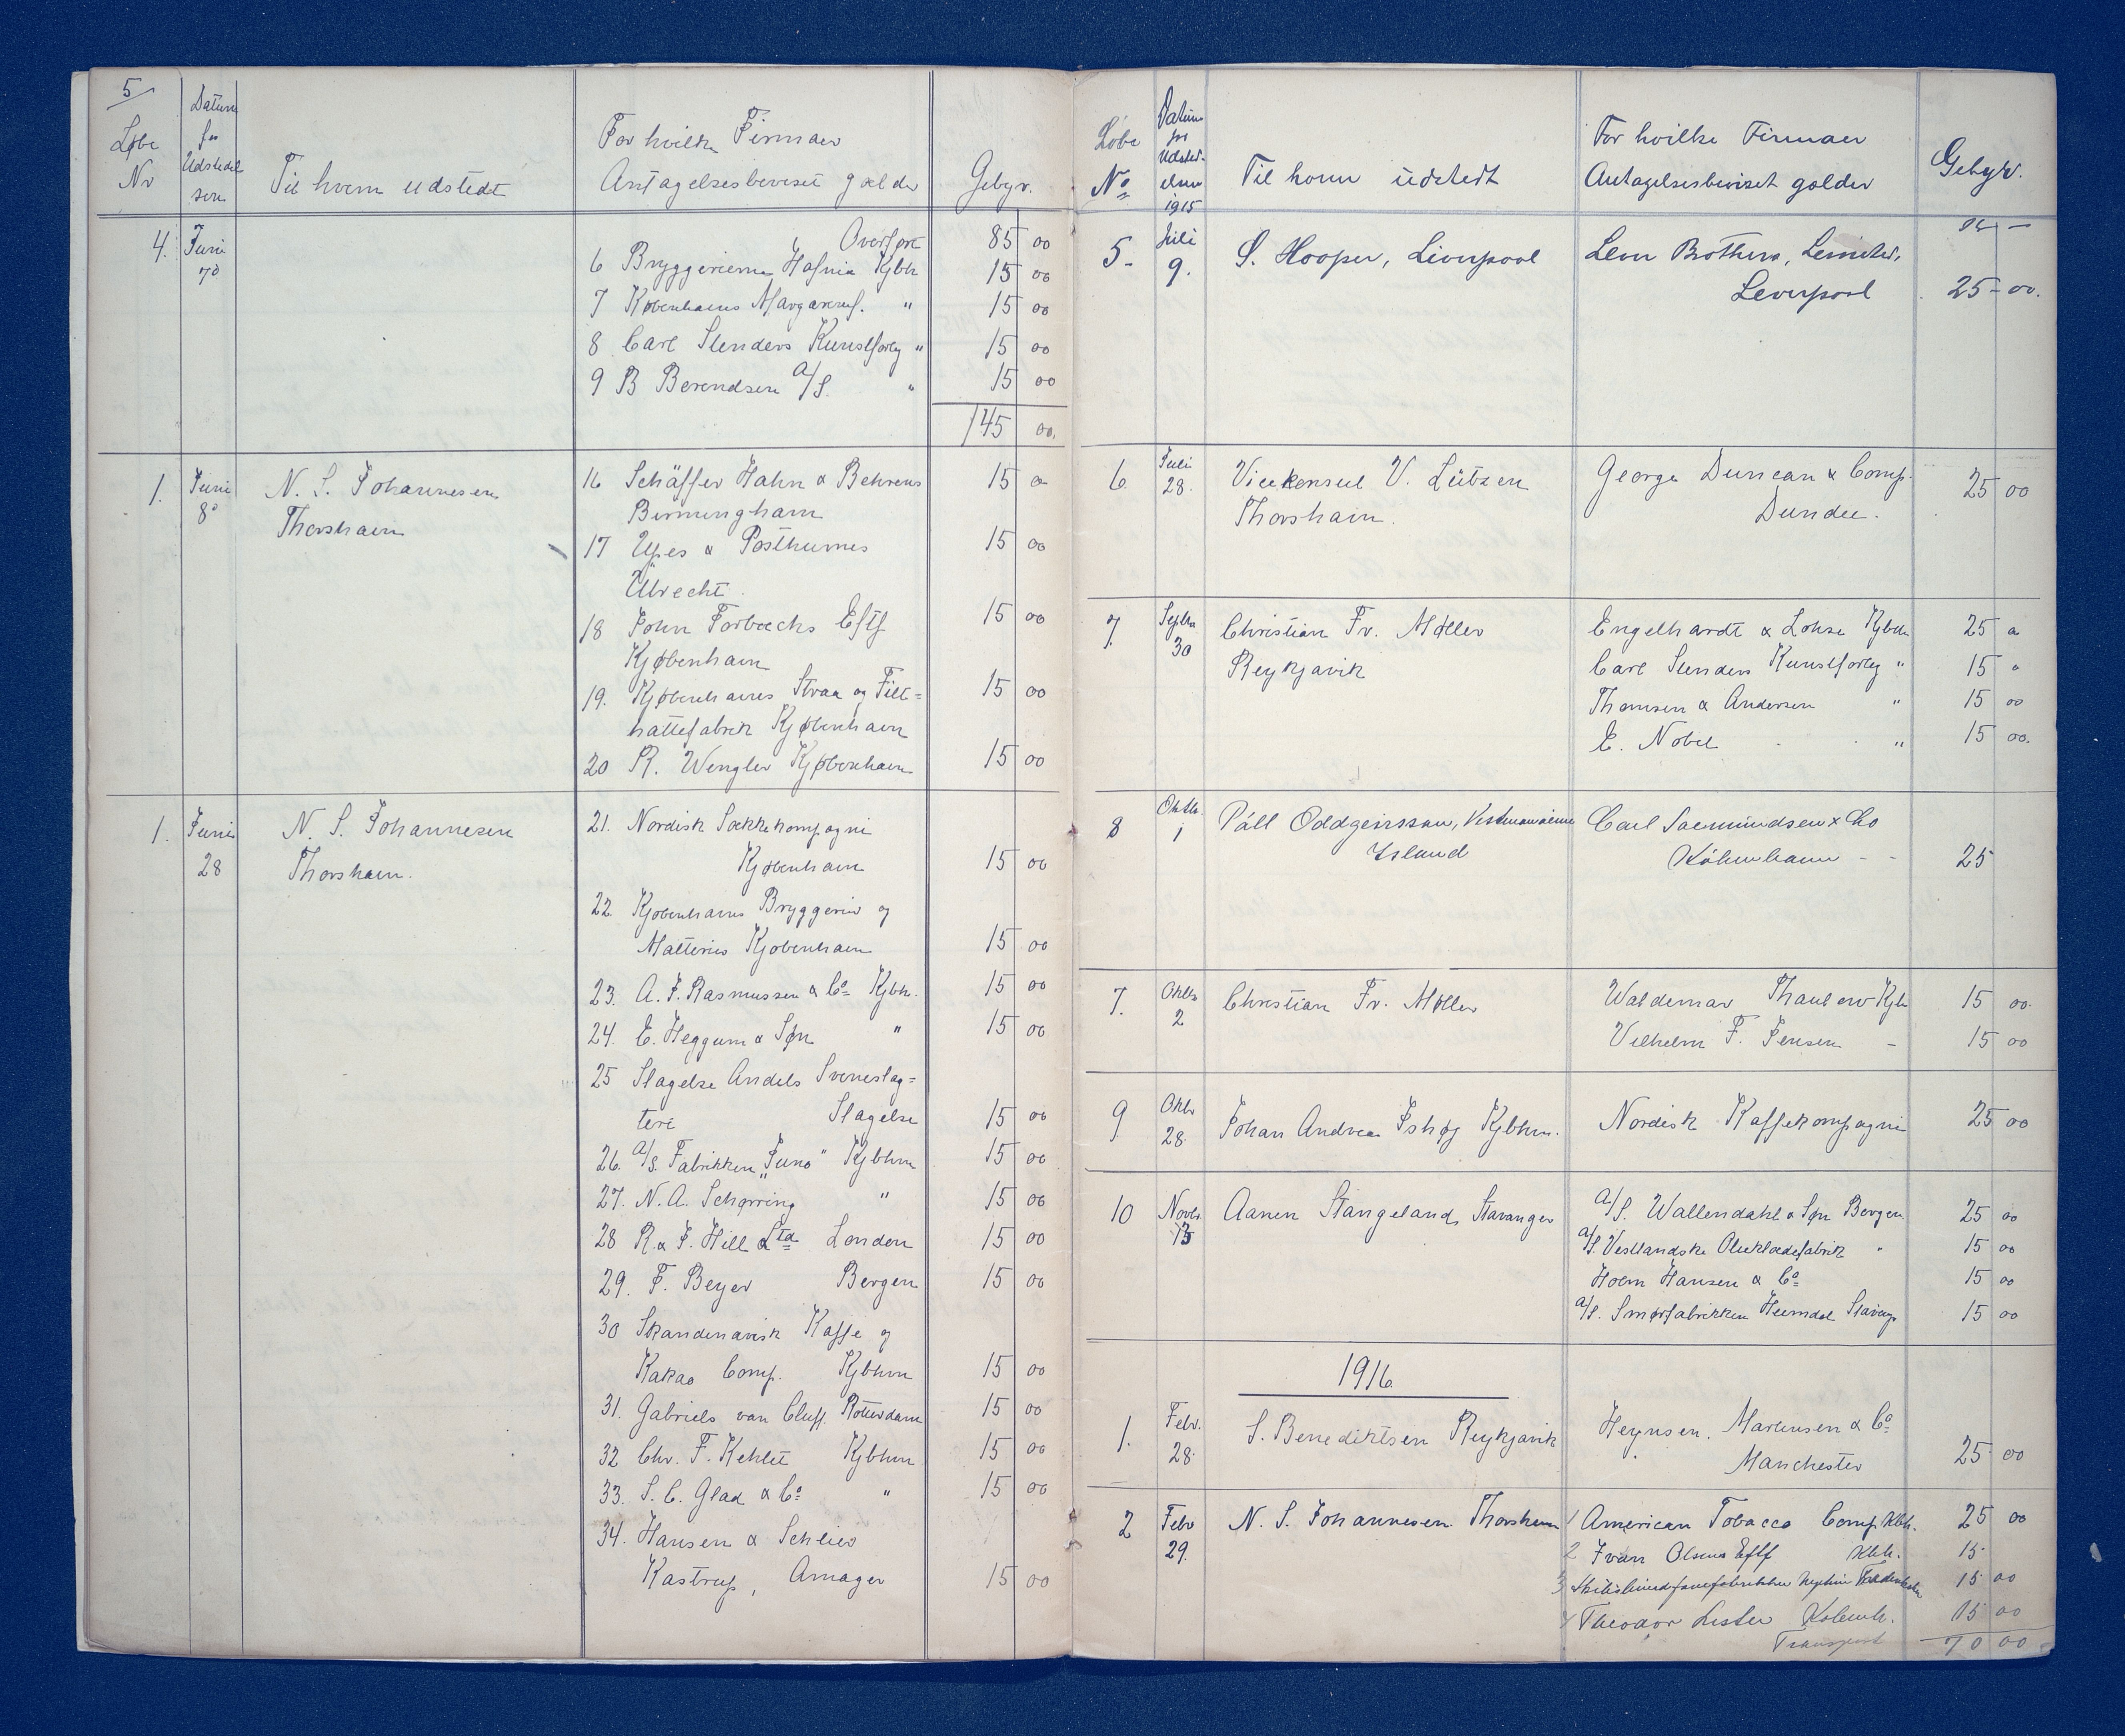 5
Løbe Nr
Datum for Udstedelsen
Til hvem udstedt
For hvilke Firmaer
Antagelsesbeviset gælder
Gebyr.
Overført 85 00
4. Juni 7º
6 Bryggerierne Hafnia Kjbh 15 00
7 Københavns Margarinef. " 15 00
8 Carl Stenders Kunstforlg " 15 00
9 B Berendsen A/S. " 15 00
145 00.
1. Juni 8º N. S. Johannesen 16 Schäffer Hahn & Behrens 15 00
Thorshavn Birmingham
17 Ypes & Posthumes 15 00
Utrecht.
18 John Forbechs Eftf 15 00
Kjøbenhavn
19. Kjøbenhavns Straa og Filt= 15 00
hattefabrik Kjøbenhavn
20 R. Wengler Kjøbenhavn 15 00
1. Juni 28 N. S. Johannesen 21. Nordisk Sækkekompagni
Thorshavn. Kjøbenhavn 15 00
22. Kjøbenhavns Bryggeri og
Malteries Kjøbenhavn 15 00
23. A. J. Rasmussen & Co Kjbh. 15 00
24. E. Heggum & Søn " 15 00
25 Slagelse Andels Svineslag=
teri Slagelse 15 00
26. A/S. Fabrikken "Juno" Kjbhvn 15 00
27. N. A. Schørring " 15 00
28 R. & J. Hill Ltd London 15 00
29. F. Beyer Bergen 15 00
30 Skandinavisk Kaffe og
Kakao Comp. Kjbhvn 15 00
31. Gabriels van Cluff. Rotterdam 15 00
32 Chr. F. Kehlet Kjbhvn 15 00
33. S. C. Glad & Co " 15 00
34. Hansen & Schlier
Kastrup, Amager 15 00
Løbe No
Datum for Udstedelsen 1915
Til hvem udstedt
For hvilke Firmaer
Antagelsesbeviset gælder
Gebyr.
5. Juli 9. S. Hooper, Liverpool Lever Brothers, Limited,
Liverpool 25 - 00.
6 Juli 28. Vicekonsul V. Lützen George Duncan & Comp. 25 00
Thorshavn. Dundee.
7. Septbr 30 Christian Fr. Møller Engelhardt & Lohse Kjbh 25 00
Reykjavik Carl Stenders Kunstforlg " 15 "
Thomsen & Andersen " 15 00
E. Nobel " 15 00.
8 Oktbr. 1 Páll Oddgeirsson, Vestmanaeine Carl Sæmundsen & Co
Island Köbenhavn - - 25
7. Oktbr 2 Christian Fr. Møller Waldemar Thaulow Kjbh 15 00.
Vilhelm F. Jensen - 15 00
9 Oktbr 28. Johan Andreas Ishøj Kjbhvn. Nordisk Kaffekompagni 25 00
10 Novbr. 13 Aanen Stangeland, Stavanger A/S. Wallendahl & Søn Bergen 25 00
A/S. Vestlandske Chokladefabrik " 15 00
Holm Hansen & Co 15 00
A/S. Smørfabrikken Heimdal Stavang. 15 00
1916
1. Febr. 28. S. Benediktsen Reykjavik Heynsen, Martensen & Co
Manchester 25 00
2 Febr 29. N. S. Johannesen Thorshavn 1 American Tobacco Comp. Kbh. 25 00
2 Ivan Olsens Eftf Kbh. 15
3 15 00
4 Theodor Lister Kobenh. 15 00
Transport 70 00